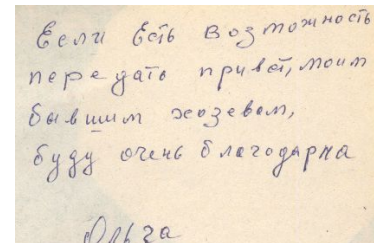 Если Есть Возможность
передать привет, моим
бывшим хозевам,
буду очень благодарна
Ольга